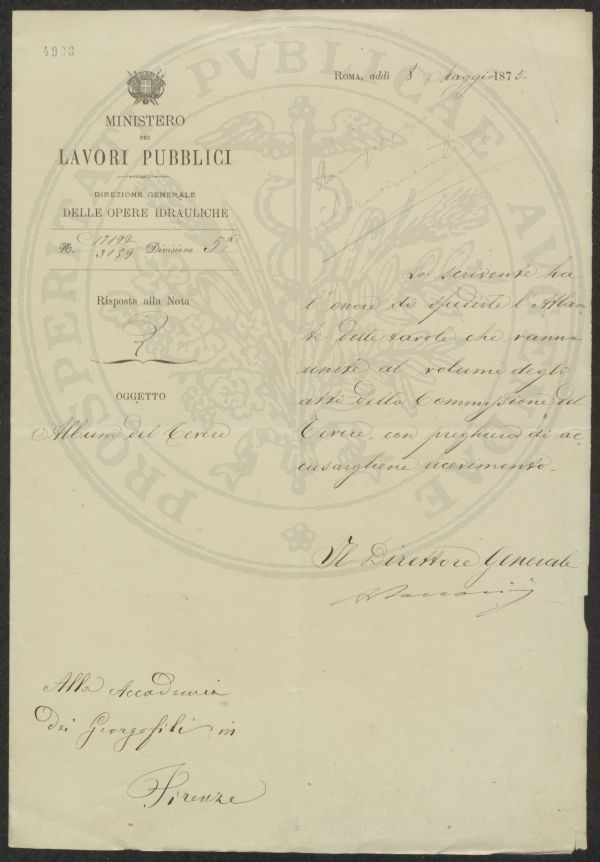 4903
ROMA, addì 8 Maggio 1875.
MINISTERO
DEI
LAVORI PUBBLICI
DIREZIONE GENERALE
DELLE OPERE IDRAULICHE
N. 17192
3159 Divisione 5a
Risposta alla Nota
OGGETTO
Album del Tevere
ricevimento
Lo scrivente ha
l'onore di spedirle l'Atlan-
te delle tavole che vanno
unite al volume degli
atti della Commissione del
Tevere, con preghiera di ac-
cusargliene ricevimento.
Il Direttore Generale
Alla Accademia
dei Georgofili in
Firenze
PROSPERITATI PVBLICAE AVGENDAE